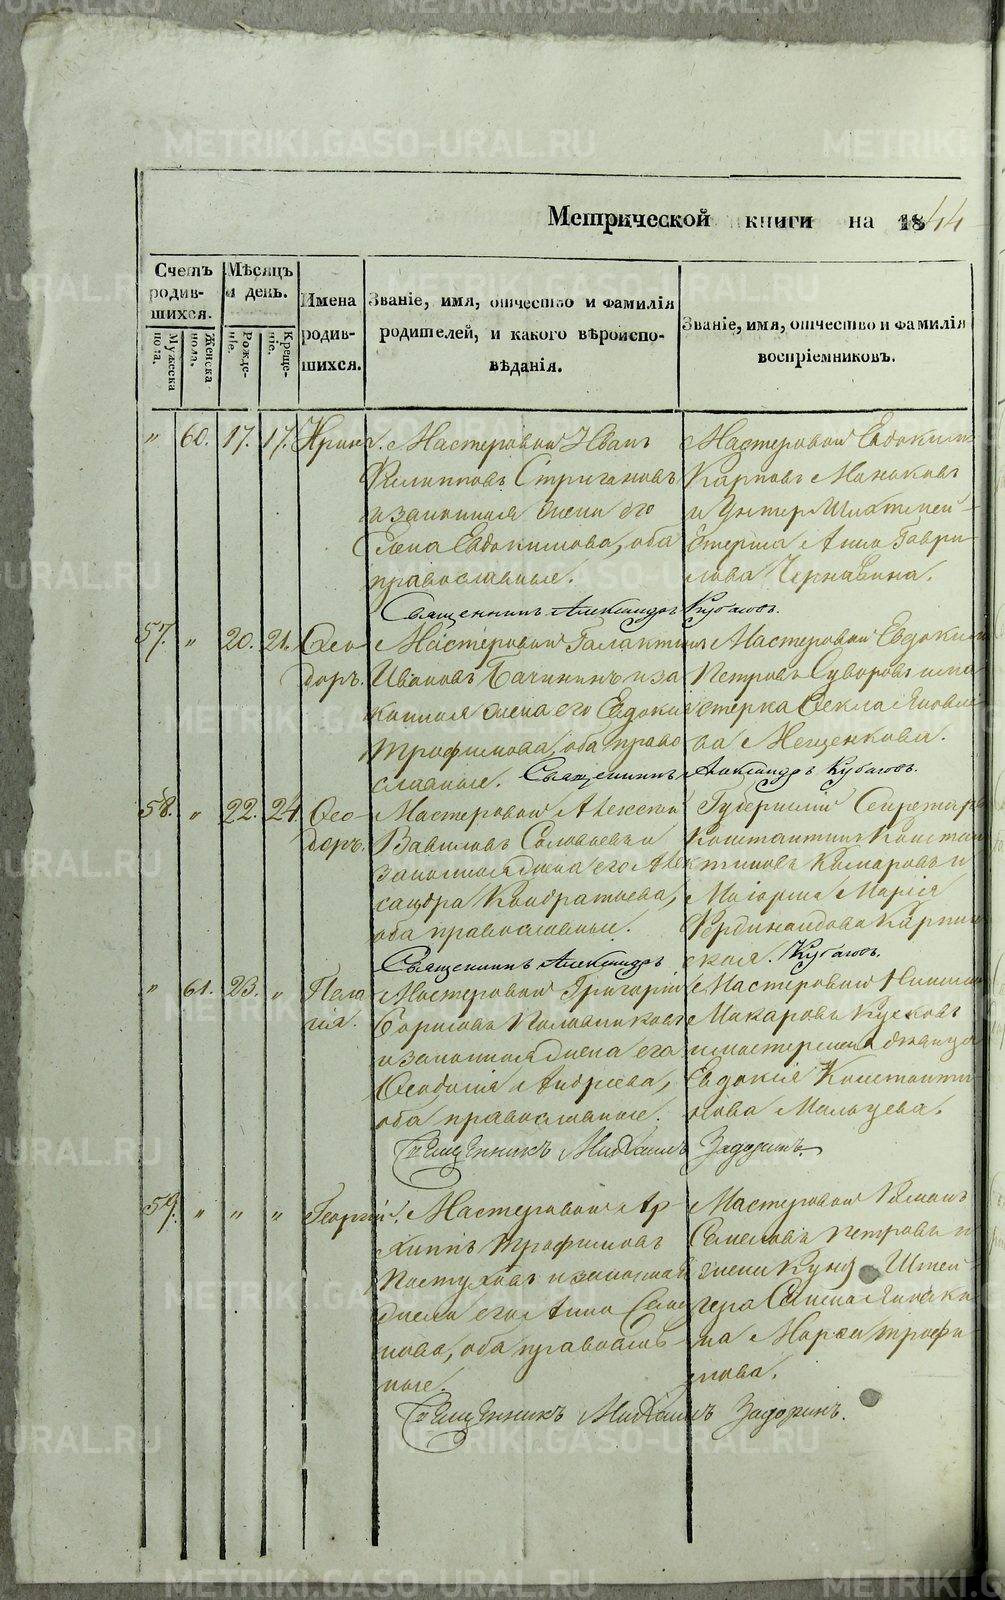 Метрической книги на 1844
Счетъ родив-шихся.
Мужеска пола.
Женска пола.
Мѣсяцъ и день.
Рожде-ніе.
Креще-ніе.
Имена родив-шихся.
Званіе, имя, отчество и фамилія
родителей, и какого вѣроиспо-
вѣданія.
Званіе, имя, отчество и фамилія
воспріемниковъ.
" 60. 17. 17. Ирина. Мастеровой Иванъ
Филипповъ Стригановъ
и законная жена его
Елена Евдокимова, оба
православные.
Мастеровой Евдокимъ
Карповъ
и Унтер Шихтмей-
стерша Анна Гаври-
лова Чернавина.
Священникъ Александръ Кубасовъ.
57. " 20. 21. Ѳео-
доръ.
Мастеровой Галактионъ
Ивановъ Бачининъ и за-
конная жена его Евдокия
Трофимова, оба право-
славные.
Мастеровой Евдокимъ
Петровъ Суворовъ и ма-
стерка Ѳекла Яковле-
ва Мещенкова.
Священникъ Александръ Кубасовъ.
58. " 22. 24. Ѳео-
доръ.
Мастеровой Алексей
Вавиловъ Соловьевъ и
законная жена его Алек-
сандра Кондратьева,
оба православные.
Губернский Секретарь
Константинъ Констан-
тиновъ Комаровъ и
Маіорша Марія
Фердинандова Карпин-
ская.
Священникъ Александръ Кубасовъ.
" 61. 23. " Пела-
гія.
Мастеровой Григорій
Борисовъ Половниковъ
и законная жена его
Ѳеодосія Андреева,
оба православные.
Мастеровой
Макаровъ Кусковъ
и мастерская вдовица
Евдокія Константи-
нова Мальцева.
Священникъ Михаилъ Задоринъ.
59. " " " Георгій. Мастеровой Ар-
хипъ Трофимовъ
Пастуховъ и законная
жена его Анна Семе-
нова, оба православ-
ные.
Мастеровой Романъ
Семеновъ Петровъ и
жена Унтер Штей-
гера Семена Яковки-
на Марѳа Трофи-
мова.
Священникъ Михаилъ Задоринъ.
METRIKI.GASO-URAL.RU